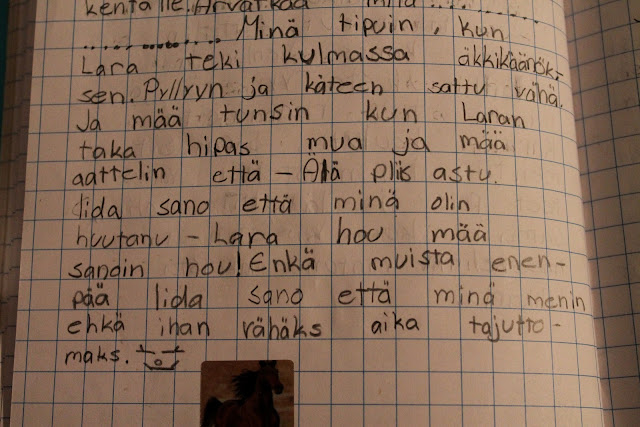 kentälle. Arvatkaa mitä...........
.............. Minä tipuin, kun
Lara teki kulmassa äkkikäänök-
sen. Pyllyyn ja käteen sattu vähä.
Ja mää tunsin kun Laran
taka hipas mua ja mää
aattelin että - Älä pliis astu.
Iida sano että minä olin
huutanu - Lara hou mää
sanoin hou! Enkä muista enen-
pää Iida sano että minä menin
ehkä ihan vähäks aika tajutto-
maks.